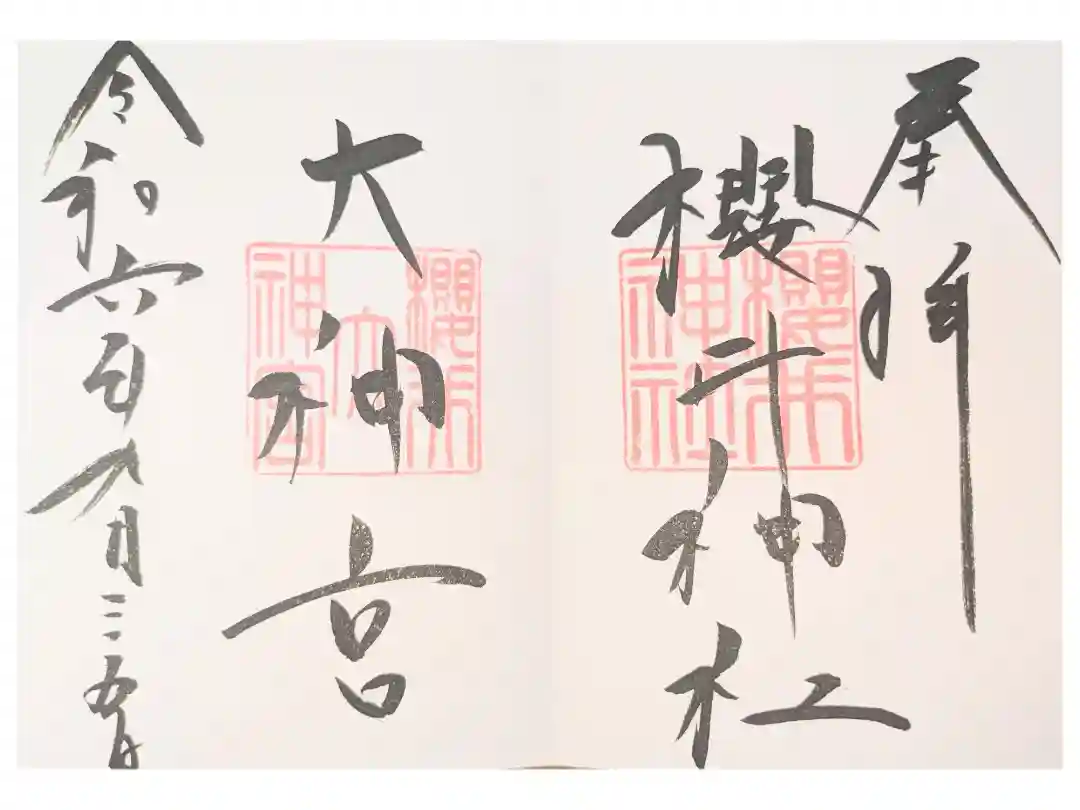 奉拝
櫻井神社
櫻井神社
大神宮
櫻井大神宮
令和六年九月二十五日